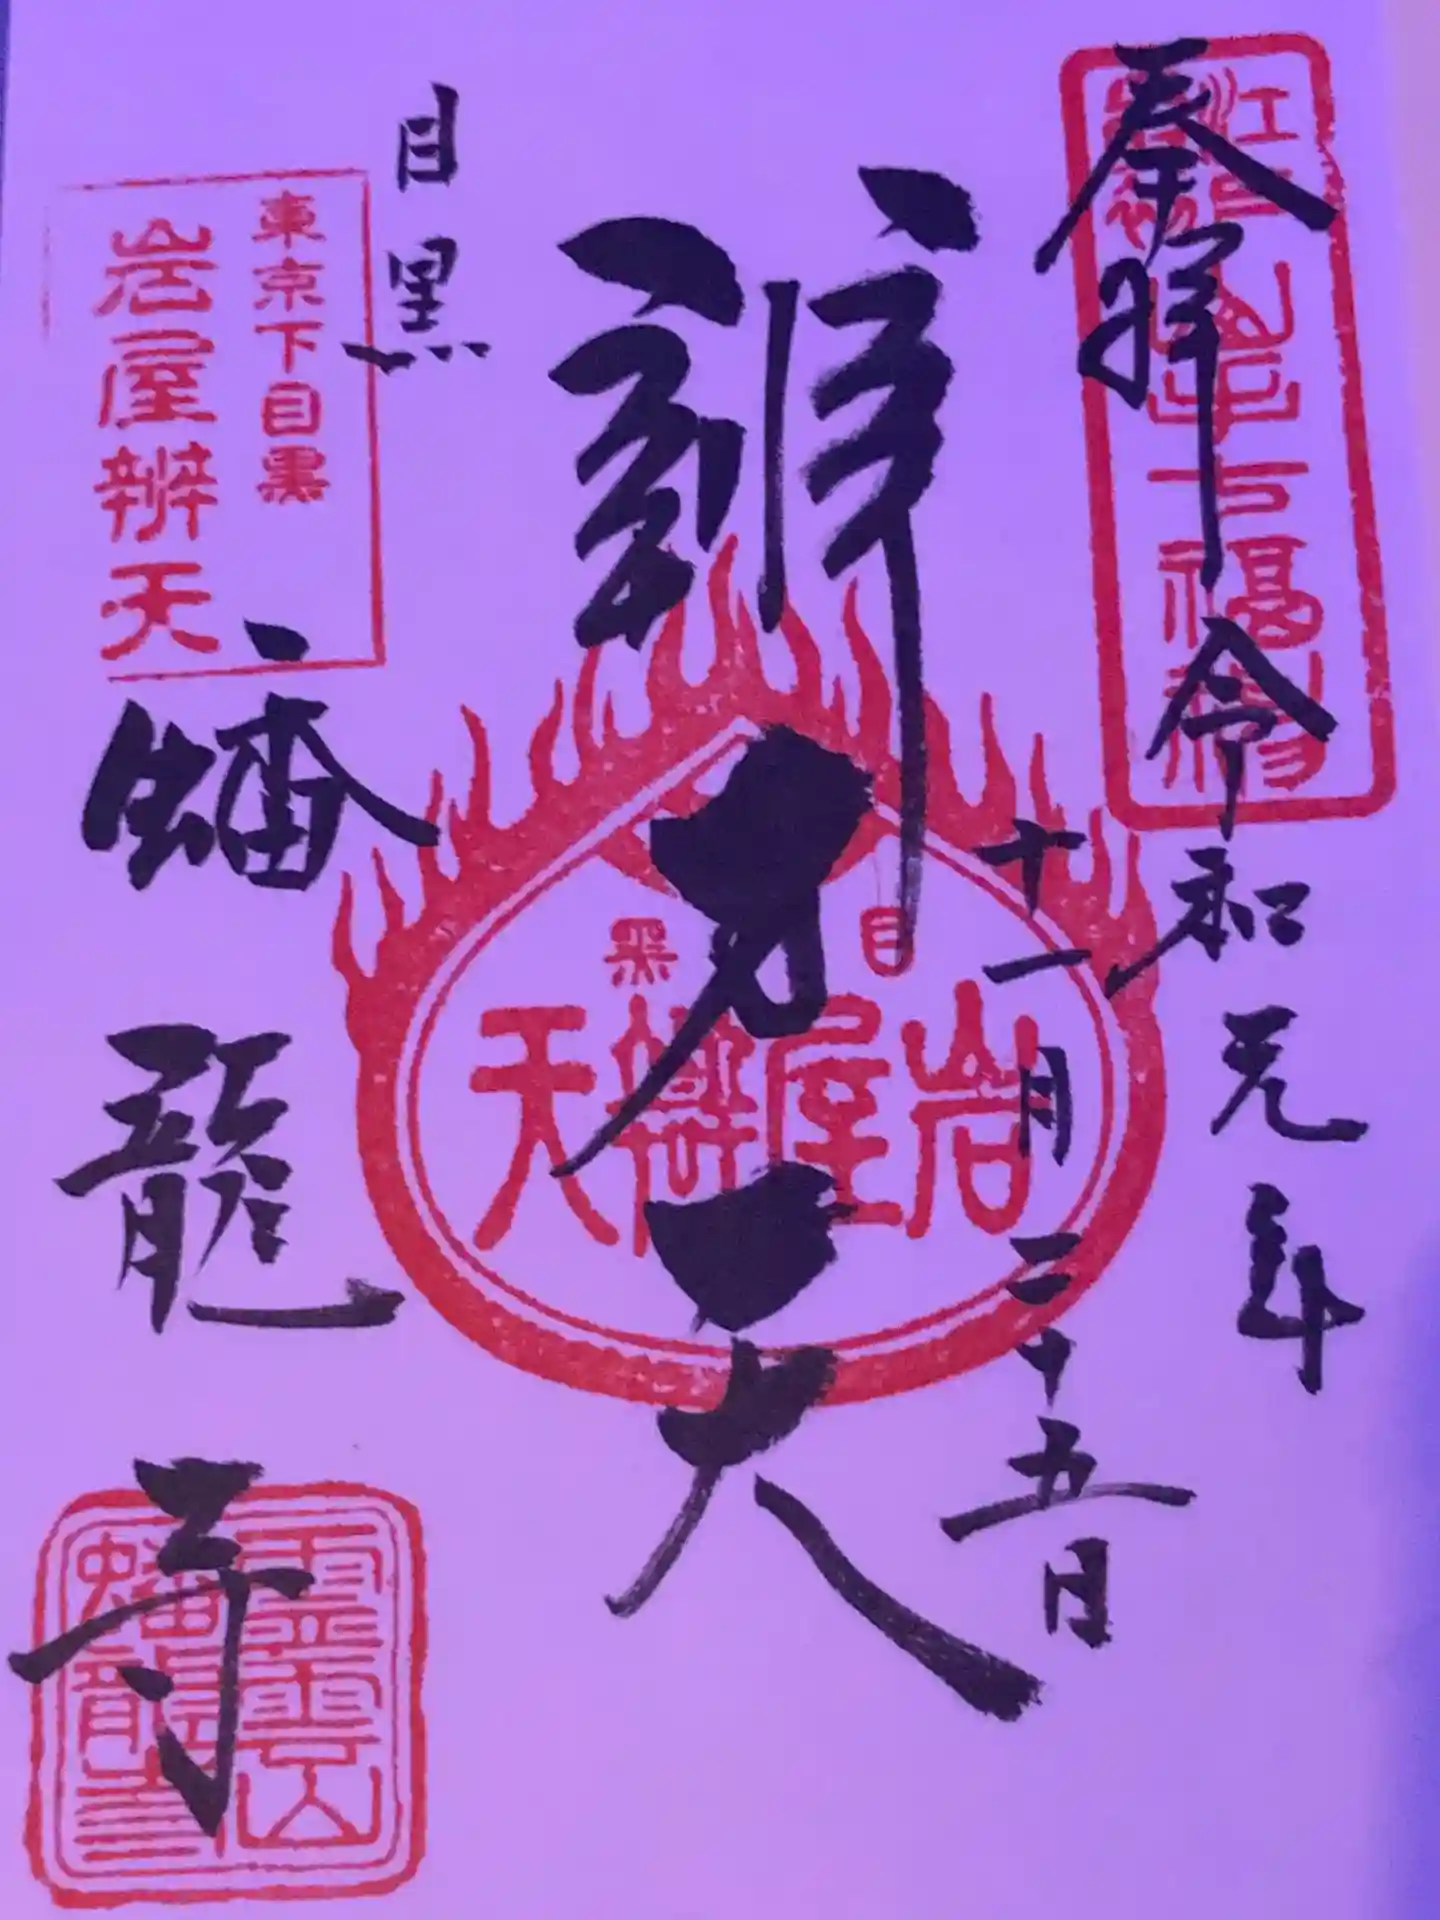 奉拝
令和元年
十一月二十五日
江戸
最初
山手七福神
辨才天
目黒
岩屋辨天
目黒
東京下目黒
岩屋辨天
蟠龍寺
霊雲山
蟠龍寺